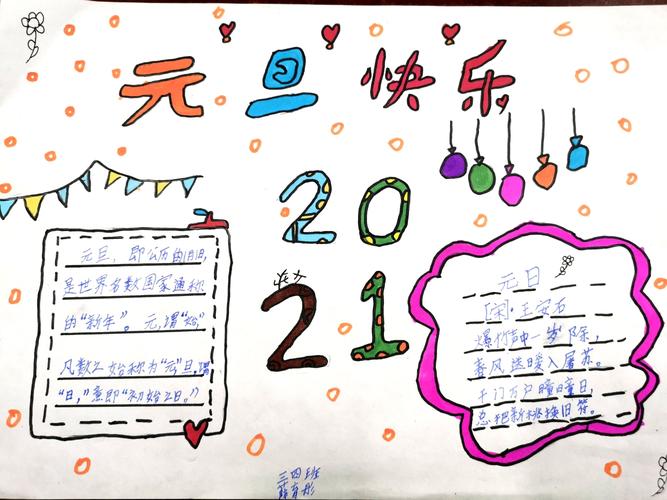 元旦快乐
20
21
元旦，即公历的1月1日，
是世界多数国家通称
的“新年”。元，谓“始”，
凡数之始称为“元”旦，谓
“日，”意即“初始之日。”）
元日
[宋]·王安石
爆竹声中一岁除，
春风送暖入屠苏。
千门万户曈曈日，
总把新桃换旧符。
三四班